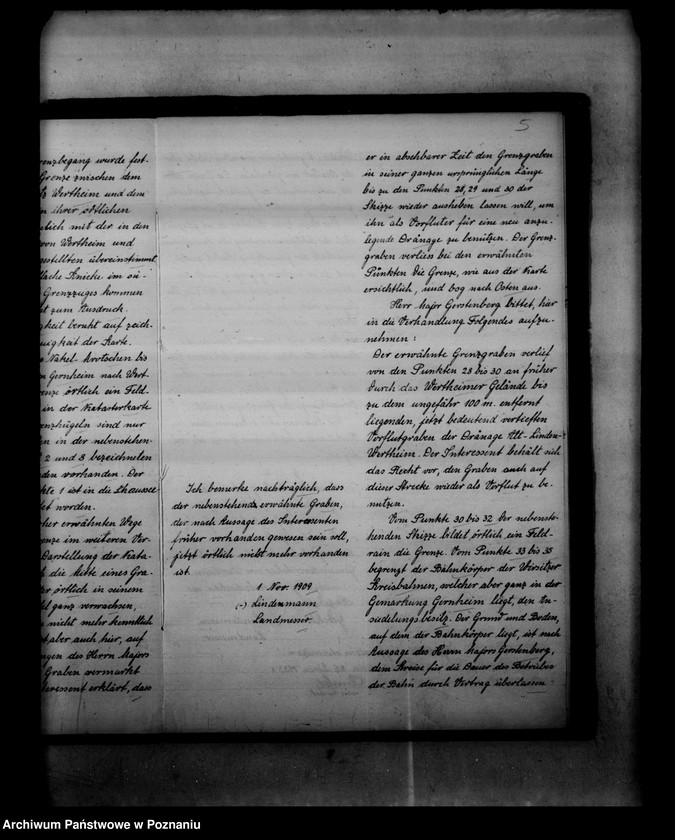 5
renzbegang wurde fest-
Grenze zwischen dem
Wertheim und dem
n ihrer örtlichen
mit der in den
von Wertheim und
gestellten übereinstimmt,
flache Knicke im sü-
Grenzzuges kommen
t zum Ausdruck.
gkeit beruht auf zeich-
uigkeit der Karte.
e Nakel-Mrotschen bis
n Gernheim nach Wert-
enze örtlich ein Feld-
in der Katasterkarte
enzhügeln sind nur
en in der nebenstehen-
2 und 3 bezeichneten
den vorhanden. Der
kte 1 ist in die Chaussee
et worden.
her erwähnten Wege
enze im weiteren Ver-
Darstellung der Kata-
t die Mitte eines Gra-
er örtlich in seinem
ganz verwachsen,
nicht mehr kenntlich
st aber auch hier, auf
ngen des Herrn Majors
Graben vermarkt
teressent erklärt, dass
Ich bemerke nachträglich, dass
der nebenstehend erwähnte Graben,
der nach Aussage des Interessenten
früher vorhanden gewesen sein soll,
jetzt örtlich nicht mehr vorhanden
ist.
1 Nov. 1909
(-) Lindenmann
Landmesser.
er in absehbarer Zeit den Grenzgraben
in seiner ganzen ursprünglichen Länge
bis zu den Punkten 28, 29 und 30 der
Skizze wieder ausheben lassen will, um
ihn als Vorfluter für eine neu anzu-
legende Dränage zu benützen. Der Grenz-
graben verliess bei den erwähnten
Punkten die Grenze, wie aus der Karte
ersichtlich, und bog nach Osten aus.
Herr Major Gerstenberg bittet, hier
in die Verhandlung Folgendes aufzu-
nehmen:
Der erwähnte Grenzgraben verlief
von den Punkten 28 bis 30 an früher
durch das Wertheimer Gelände bis
zu dem ungefähr 100 m. entfernt
liegenden, jetzt bedeutend vertieften
Vorflutgraben der Dränage Alt-Linden-
Wertheim. Der Interessent behält sich
das Recht vor, den Graben auch auf
dieser Strecke wieder als Vorflut zu be-
nutzen.
Vom Punkte 30 bis 32 der nebenste-
henden Skizze bildet örtlich ein Feld-
rain die Grenze. Vom Punkte 33 bis 35
begrenzt der Bahnkörper der Wirsitzer
Kreisbahnen, welcher aber ganz in der
Gemarkung Gernheim liegt, den An-
siedelungsbesitz. Der Grund und Boden,
auf dem der Bahnkörper liegt, ist nach
Aussage des Herrn Majors Gerstenberg,
dem Kreise für die Dauer des Betriebes
der Bahn durch Vertrag überlassen
Archiwum Państwowe w Poznaniu